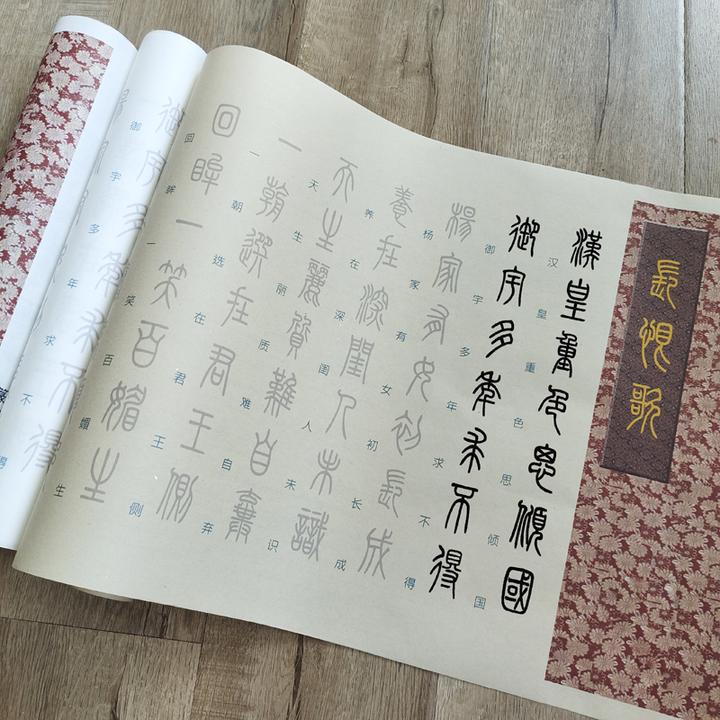 長恨歌
漢皇重色思傾國
汉皇重色思倾国
御宇多年求不得
御宇多年求不得
楊家有女初長成
杨家有女初长成
養在深閨人未識
养在深闺人未识
天生麗質難自棄
天生丽质难自弃
一朝選在君王側
一朝选在君王侧
回眸一笑百媚生
回眸一笑百媚生
御宇多年求不得
御宇多年求不得
篆